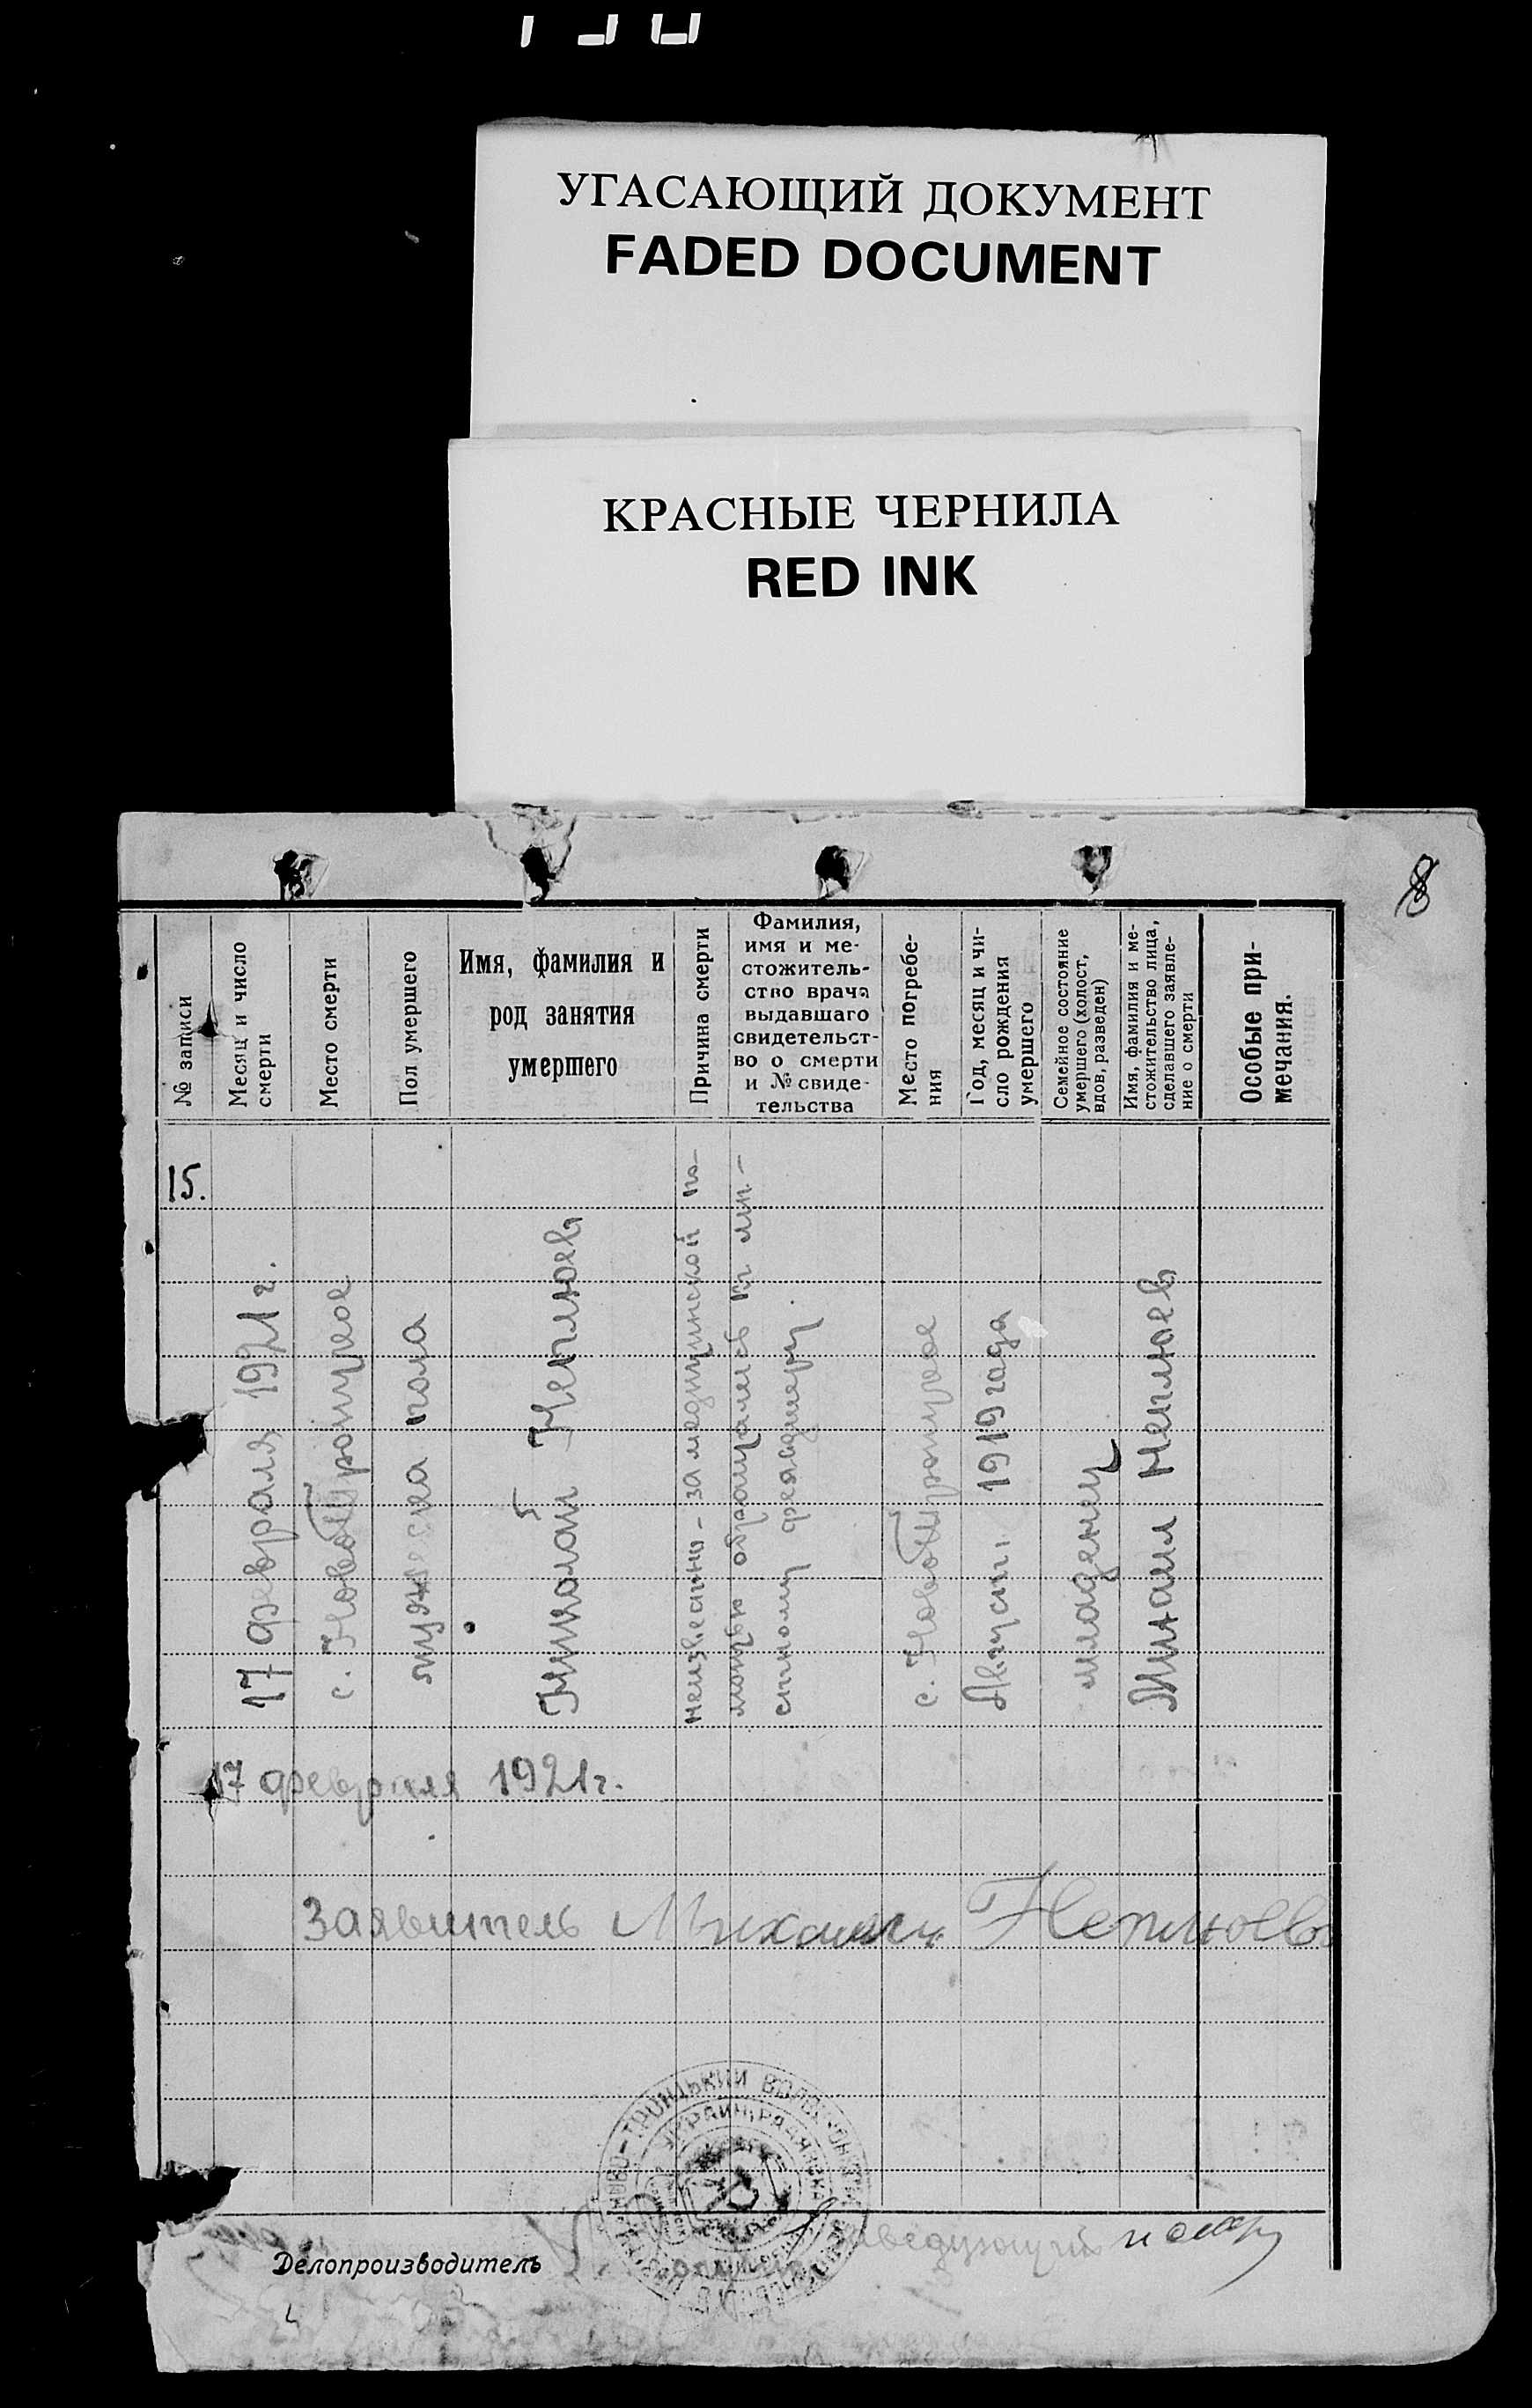 УГАСАЮЩИЙ ДОКУМЕНТ
FADED DOCUMENT
КРАСНЫЕ ЧЕРНИЛА
RED INK
8
№ записи
Месяц и число
смерти
Место смерти
Пол умершего
Имя, фамилия и
род занятия
умершего
Причина смерти
Фамилия,
имя и ме-
стожитель-
ство врача
выдавшаго
свидетельст-
во о смерти
и № свиде-
тельства
Место погребе-
ния
Год, месяц и чи-
сло рождения
умершего
Семейное состояние
умершего (холост,
вдов, разведен)
Имя, фамилия и ме-
стожительство лица,
сделавшего заявле-
ние о смерти
Особые при-
мечания.
15.
17 февраля 1921 г.
с. НовоТроицкое
мужеска пола
Николай Неплюевъ
неизвестно - за медицинской по-
мощью обращались къ ми-
стному фельдшеру
с. НовоТроицкое
Август, 1919 года
младенец
Михаил Неплюев
17 февраля 1921 г.
Заявитель Михаил Неплюевъ
НОВО-ТРОИЦЬКИЙ
Заведующий
Делопроизводитель